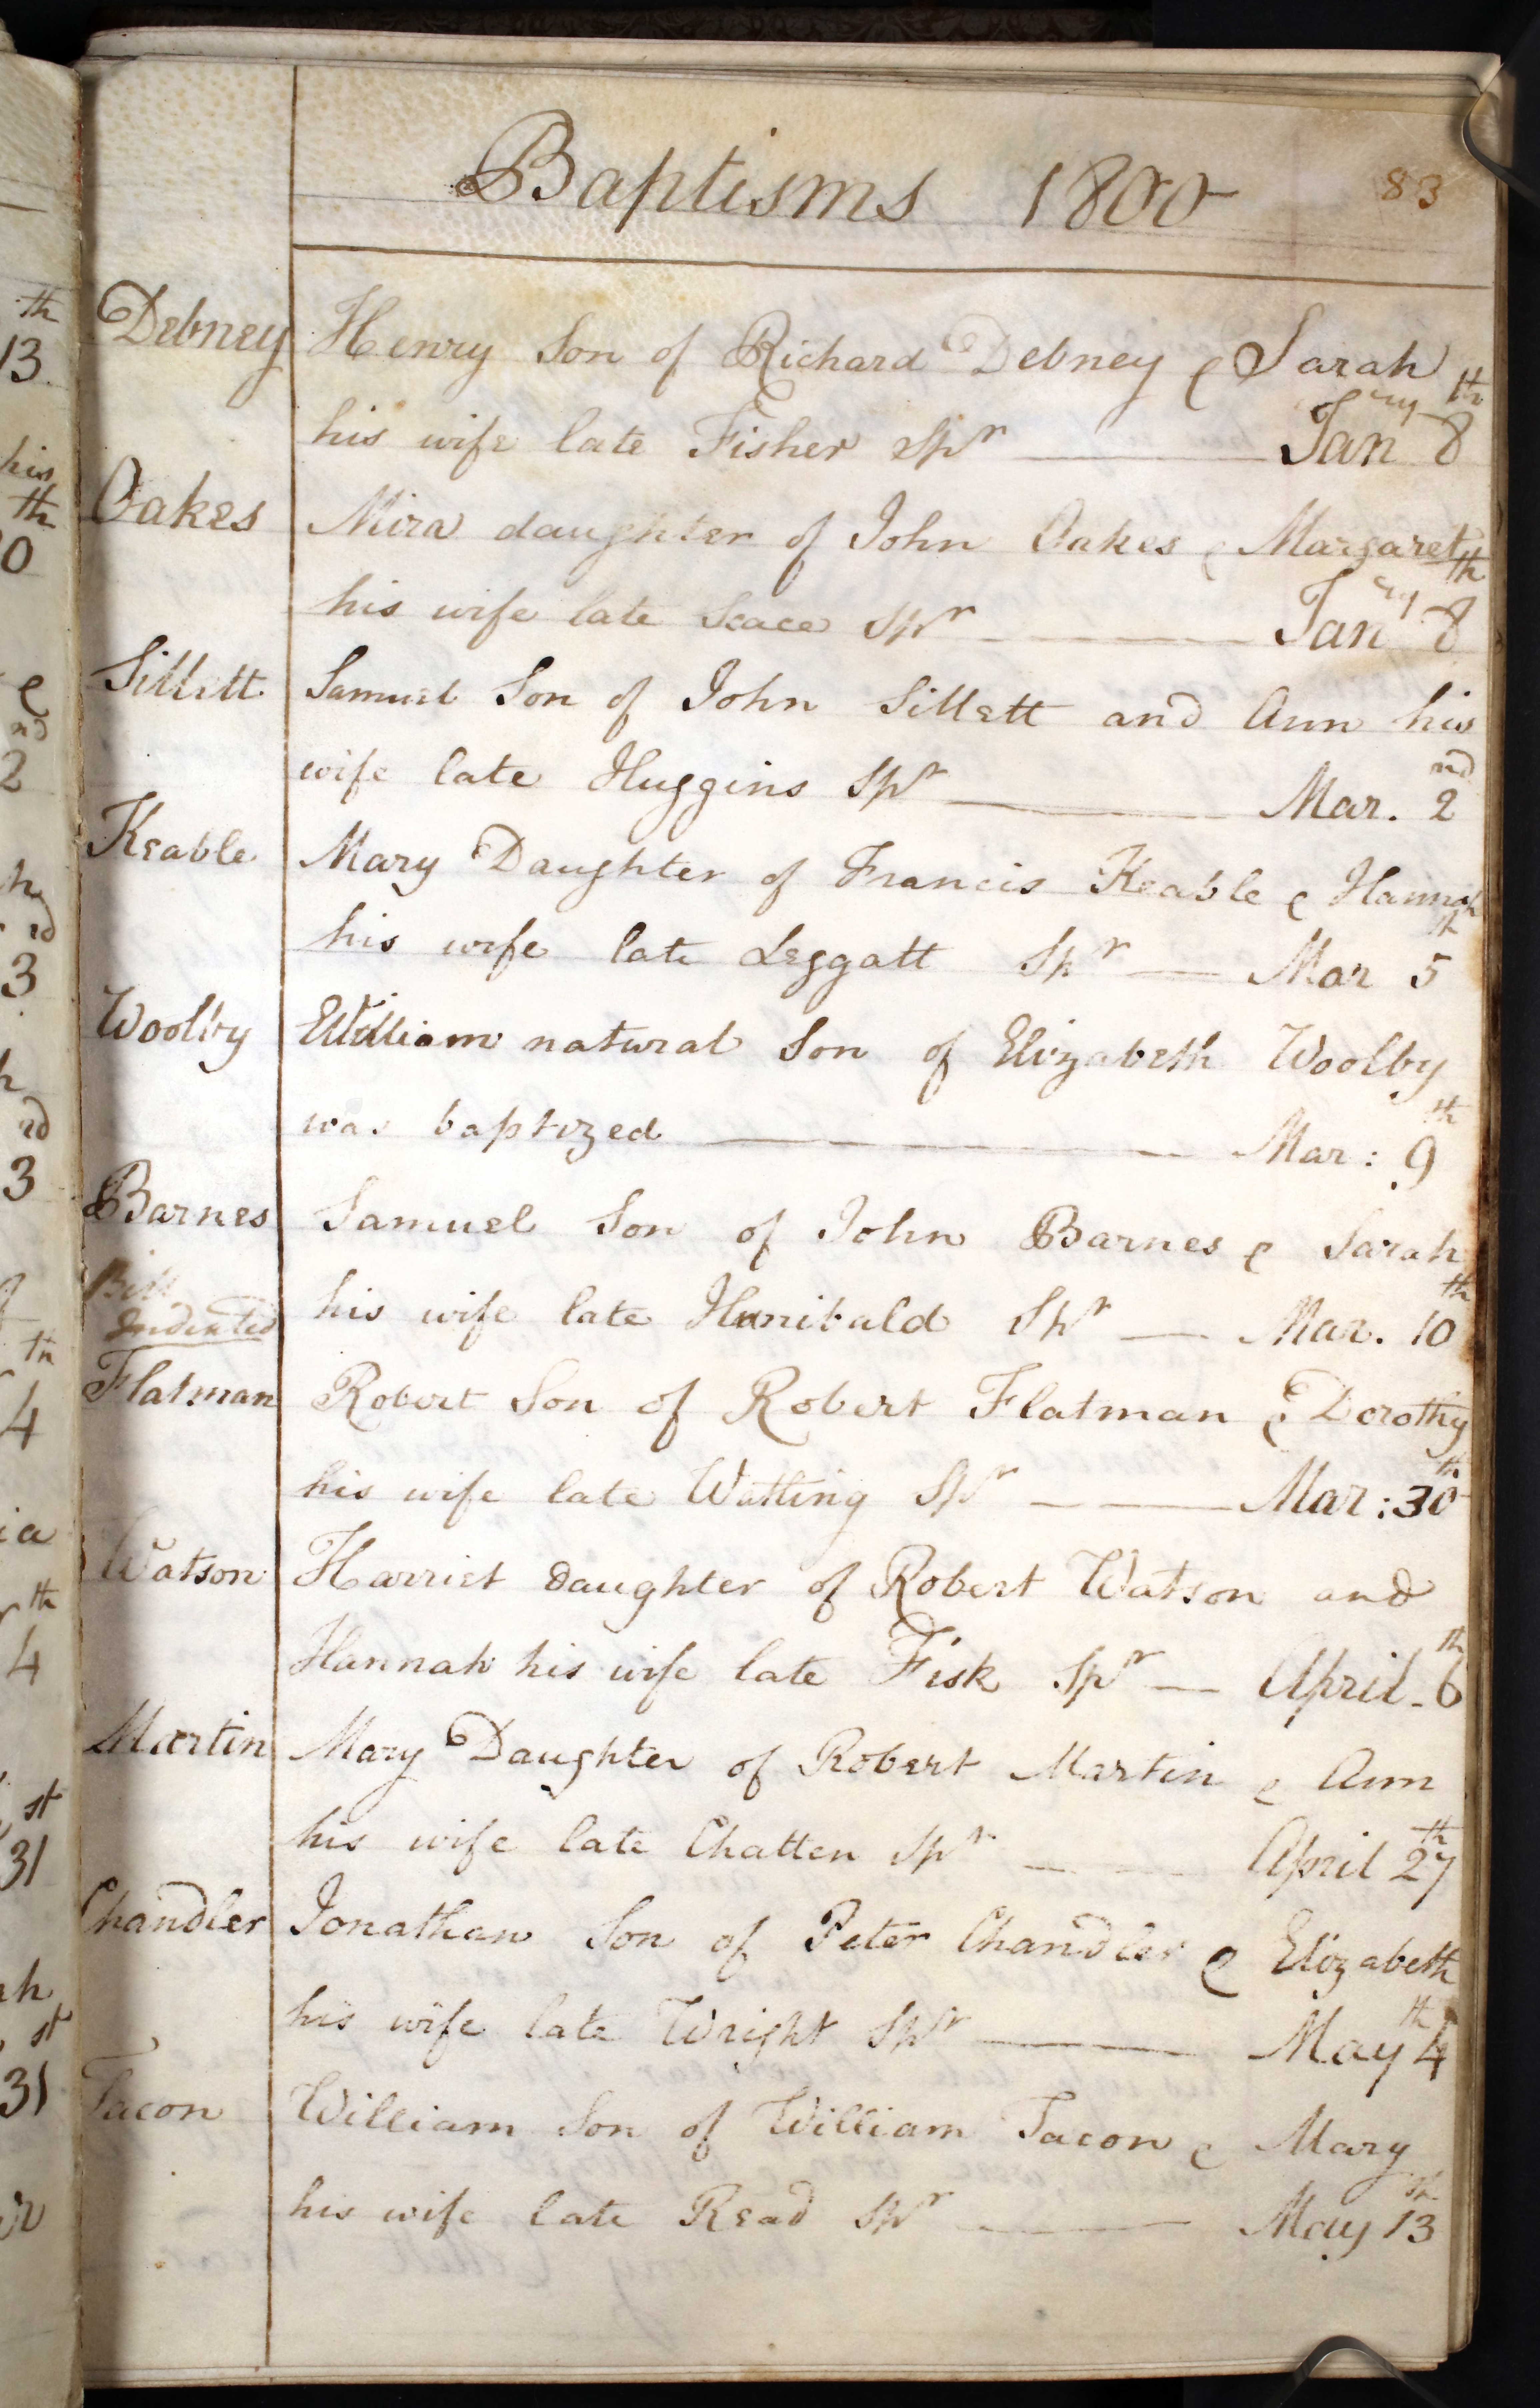 Baptisms 1800 83
Debney Henry Son of Richard Debney & Sarah
his wife late Fisher Spr Janry 8th
Oakes Mira daughter of John Oakes & Margaret
his wife late Scace Spr Janry 8th
Sillett Samuel Son of John Sillett and Ann his
wife late Huggins Spr Mar. 2nd
Keable Mary Daughter of Francis Keable & Hannah
his wife late Leggatt Spr Mar 5th
Woolby William natural Son of Elizabeth Woolby
was baptized Mar: 9th
Barnes Samuel Son of John Barnes & Sarah
his wife late Hunibald Spr Mar. 10th
Flatman Robert Son of Robert Flatman & Dorothy
his wife late Watling Spr Mar: 30th
Watson Harriet daughter of Robert Watson and
Hannah his wife late Fisk Spr April 6th
Martin Mary Daughter of Robert Martin & Ann
his wife late Chatten Spr April 27th
Chandler Jonathan Son of Peter Chandler & Elizabeth
his wife late Wright Spr May 4th
Tacon William Son of William Tacon & Mary
his wife late Read Spr May 13th